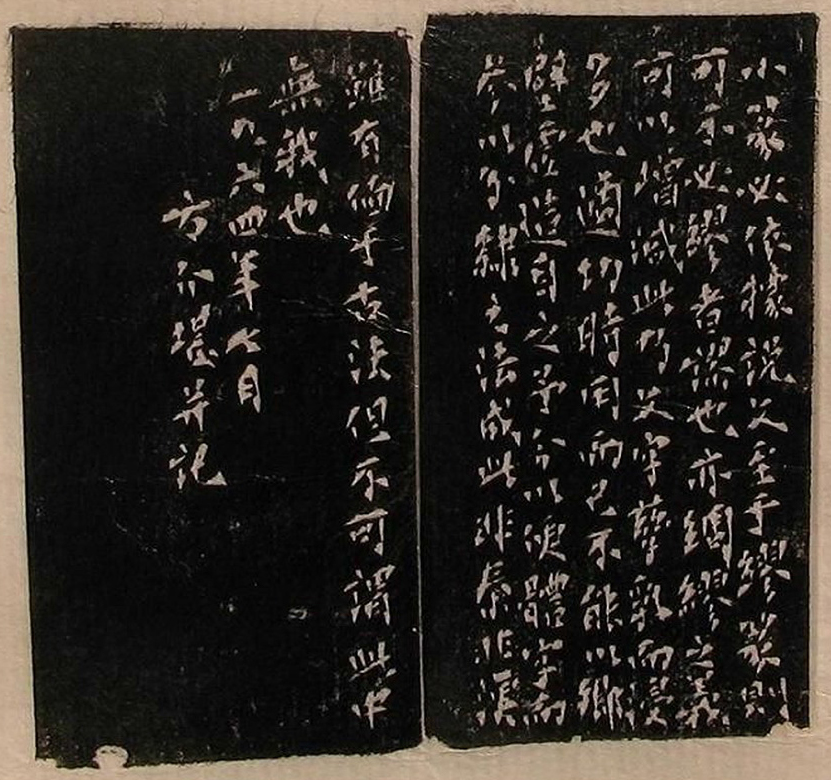 小篆必依據說文至乎繆篆則
可不必繆者謬也亦綢繆之義
可以增減此乃文字孳乳而寖
多也適切時用而已不能以鄉
壁虛造目之予今以便體字而
參以分隸之法成此非秦非漢
雖有偭乎古法但不可謂此中
無我也
一九六四年七月
方介堪并記